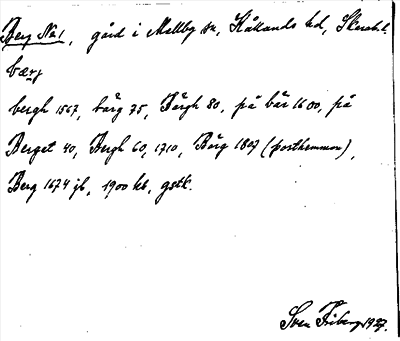 Berg No 1, gård i Mellby sn, Kållands hd, Skarab. l.
bærj
bergh 1567, bärg 75, Bärgh 80, på bär 1600, på
Berget 40, Bergh 60, 1710, Bärg 1807 (posthemman),
Berg 1674 jb, 1900 kb, gstk.
Sven Friberg 1927.